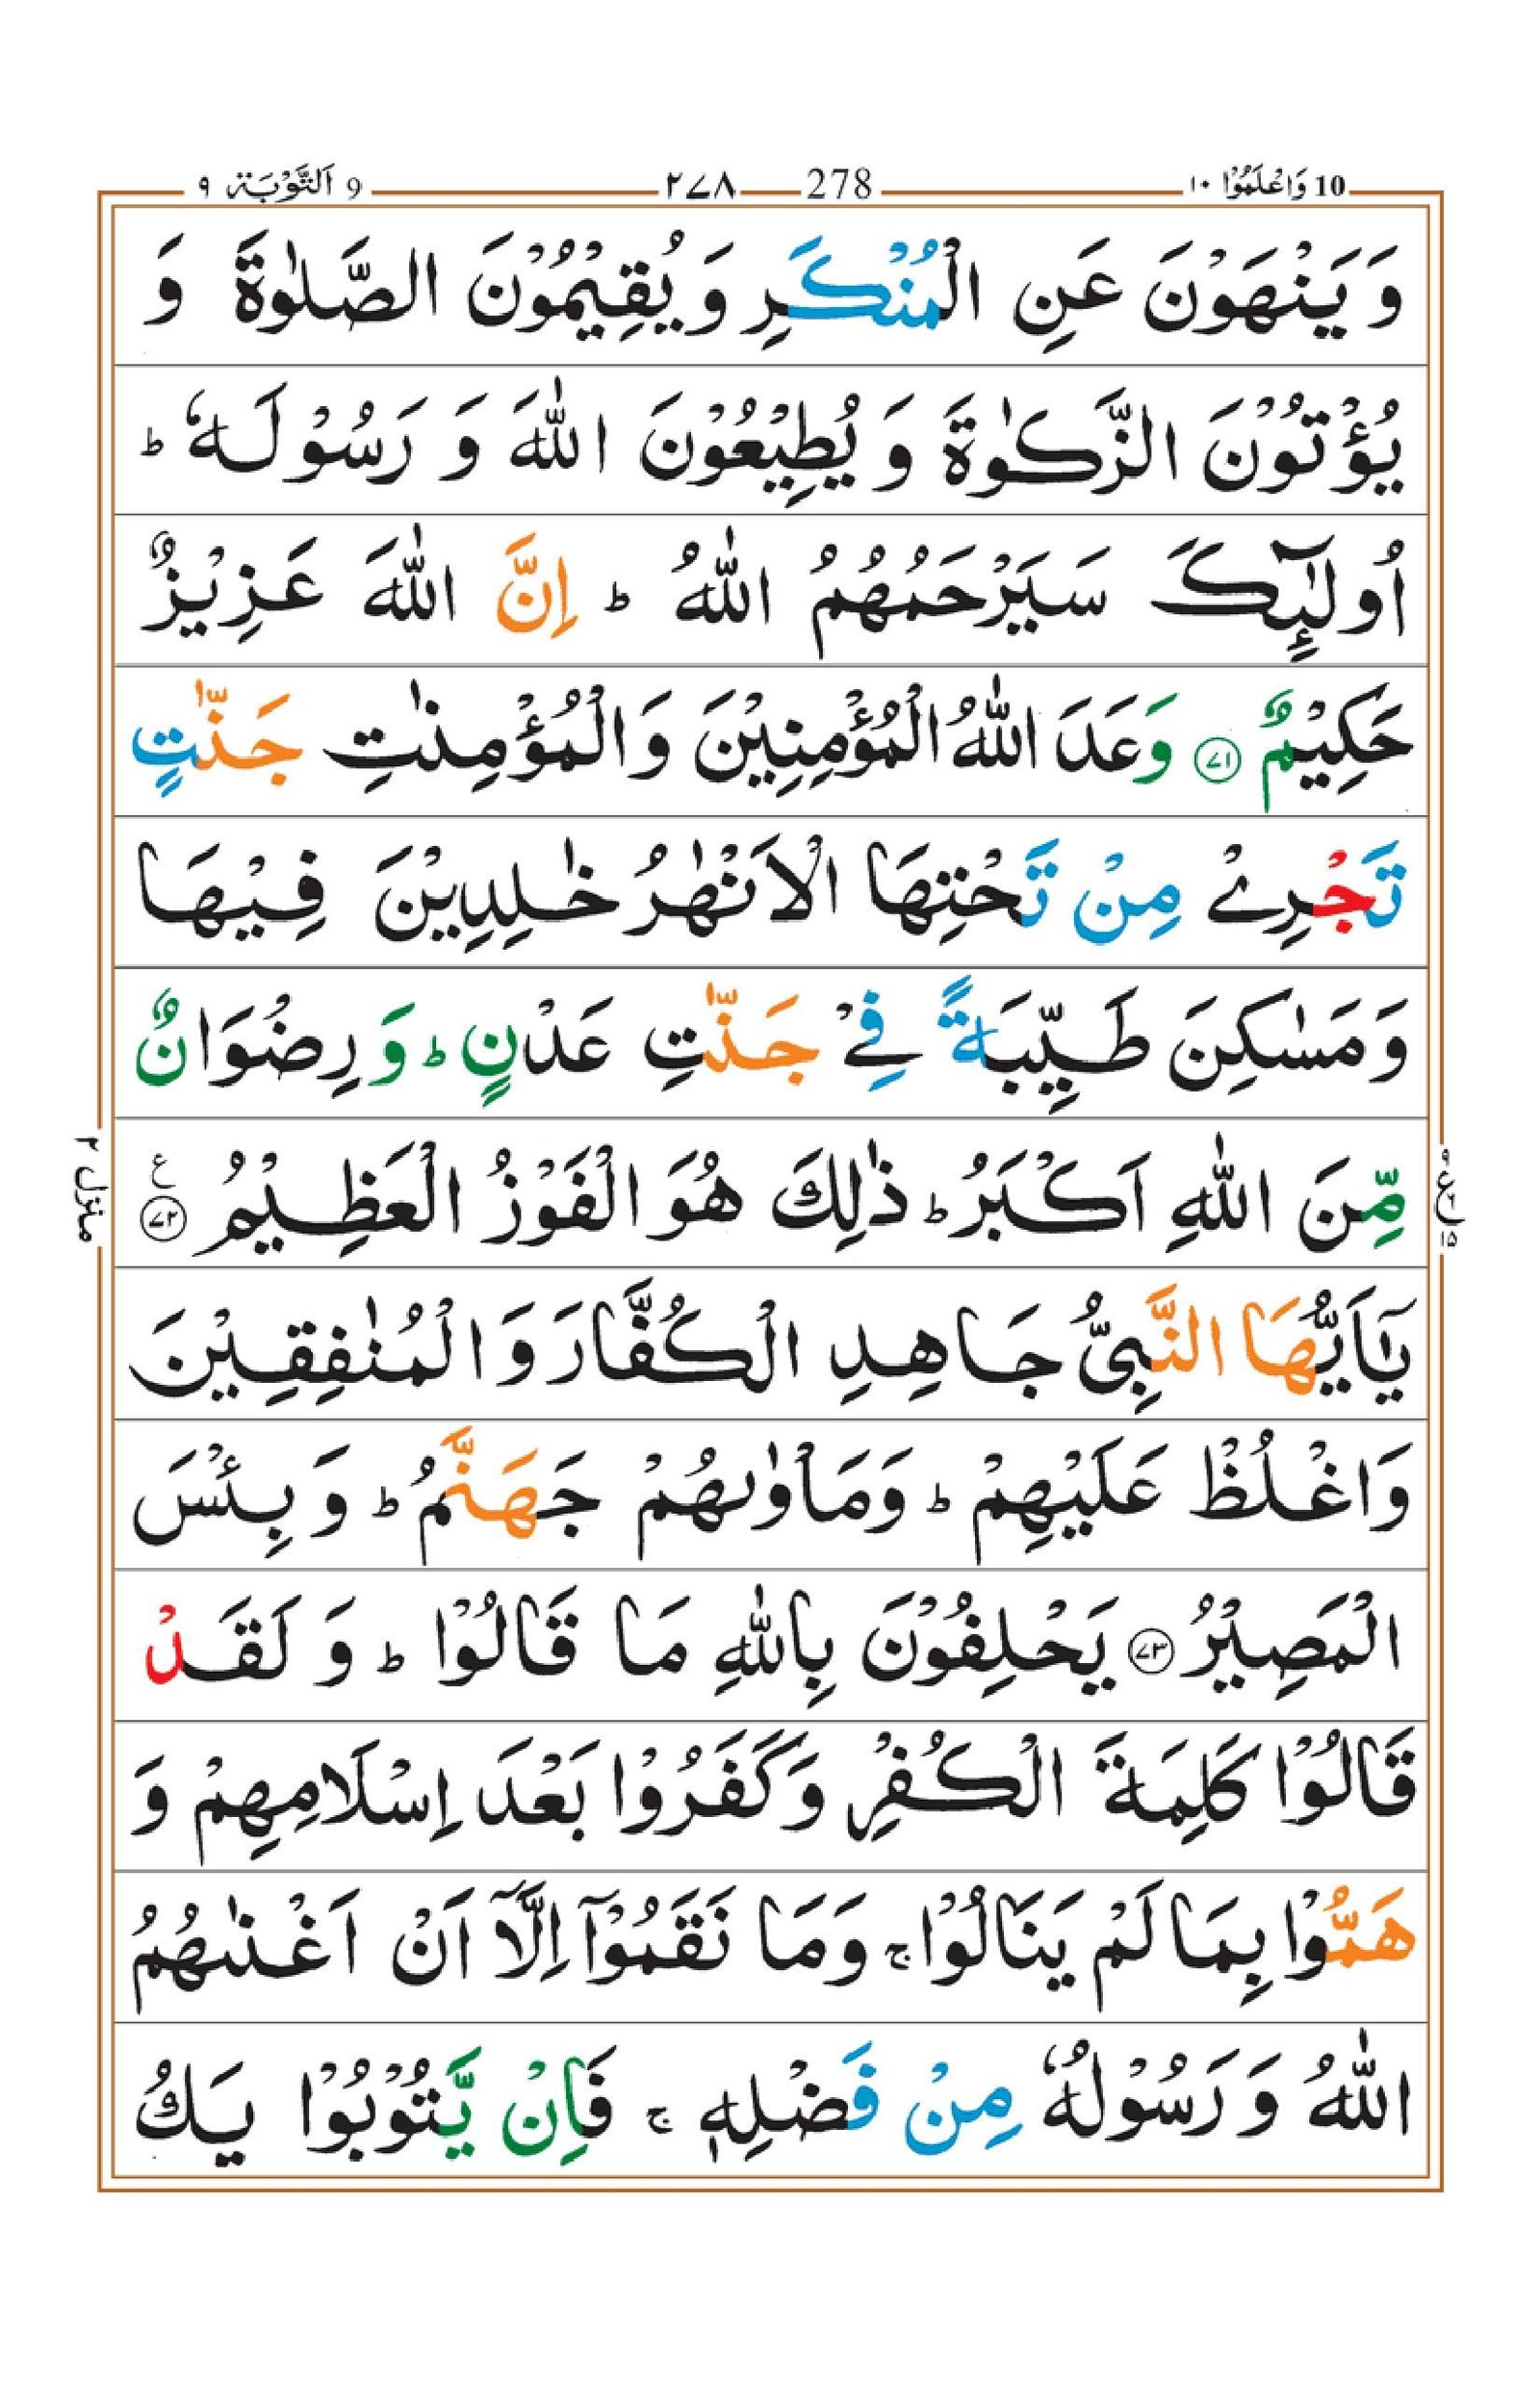 10 وَاعْلَمُوْٓا ١٠ 278 ٢٧٨ 9 اَلتَّوْبَة ٩
وَ يَنْهَوْنَ عَنِ الْمُنْكَرِ وَ يُقِيْمُوْنَ الصَّلٰوةَ وَ
يُؤْتُوْنَ الزَّكٰوةَ وَ يُطِيْعُوْنَ اللّٰهَ وَ رَسُوْلَهٗ ؕ
اُولٰٓئِكَ سَيَرْحَمُهُمُ اللّٰهُ ؕ اِنَّ اللّٰهَ عَزِيْزٌ
حَكِيْمٌ ﴿٧١﴾ وَعَدَ اللّٰهُ الْمُؤْمِنِيْنَ وَالْمُؤْمِنٰتِ جَنّٰتٍ
تَجْرِيْ مِنْ تَحْتِهَا الْاَنْهٰرُ خٰلِدِيْنَ فِيْهَا
وَ مَسٰكِنَ طَيِّبَةً فِيْ جَنّٰتِ عَدْنٍ ؕ وَ رِضْوَانٌ
مِّنَ اللّٰهِ اَكْبَرُ ؕ ذٰلِكَ هُوَ الْفَوْزُ الْعَظِيْمُ ﴿٧٢﴾ ع
٩ ع ١٥
منزل ٢
يٰٓاَيُّهَا النَّبِيُّ جَاهِدِ الْكُفَّارَ وَ الْمُنٰفِقِيْنَ
وَاغْلُظْ عَلَيْهِمْ ؕ وَمَاْوٰىهُمْ جَهَنَّمُ ؕ وَ بِئْسَ
الْمَصِيْرُ ﴿٧٣﴾ يَحْلِفُوْنَ بِاللّٰهِ مَا قَالُوْا ؕ وَ لَقَدْ
قَالُوْا كَلِمَةَ الْكُفْرِ وَ كَفَرُوْا بَعْدَ اِسْلَامِهِمْ وَ
هَمُّوْا بِمَا لَمْ يَنَالُوْا ۚ وَمَا نَقَمُوْٓا اِلَّآ اَنْ اَغْنٰىهُمُ
اللّٰهُ وَ رَسُوْلُهٗ مِنْ فَضْلِهٖ ۚ فَاِنْ يَّتُوْبُوْا يَكُ